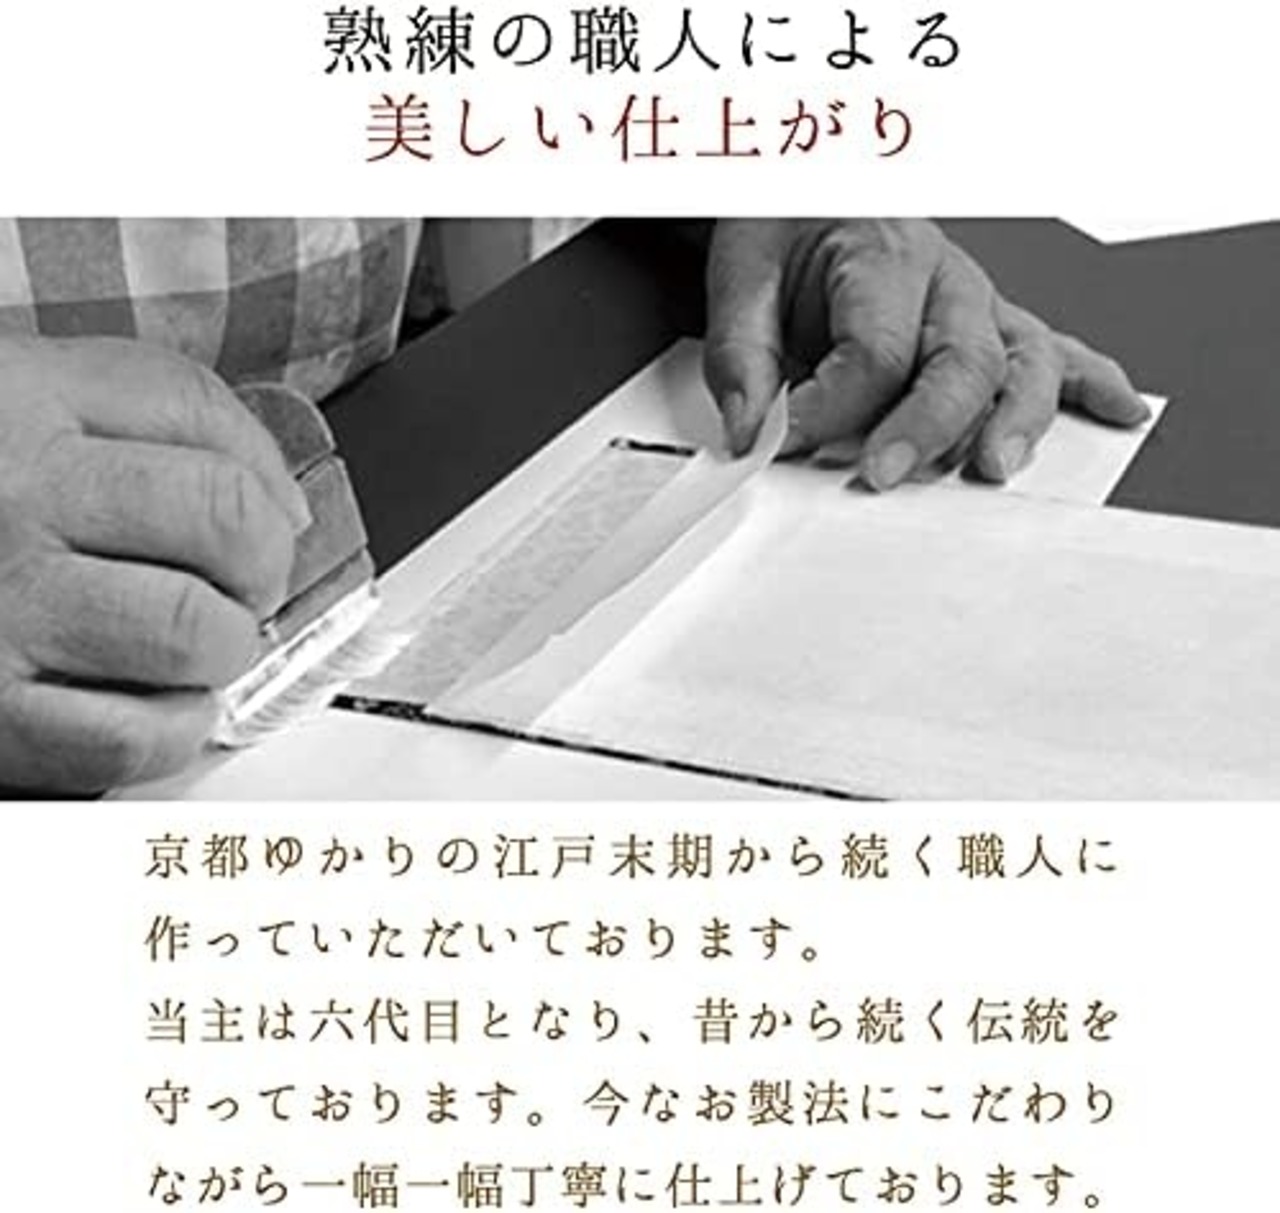 熟練の職人による
美しい仕上がり
京都ゆかりの江戸末期から続く職人に
作っていただいております。
当主は六代目となり、昔から続く伝統を
守っております。今なお製法にこだわり
ながら一幅一幅丁寧に仕上げております。